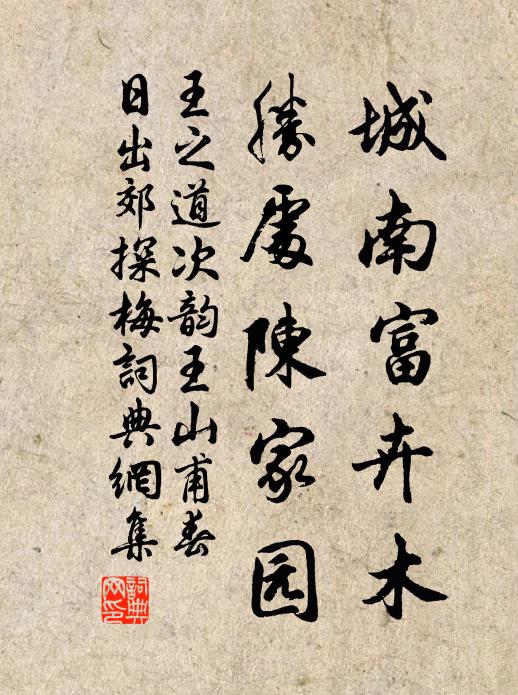 城南富卉木
勝處陳家园
王之道次韵王山甫春
日出郊探梅詞典網集
詞典网印